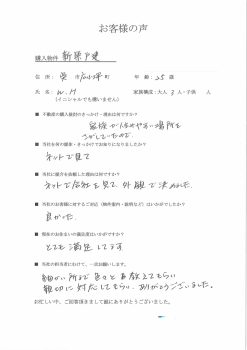 お客様の声
購入物件 新築戸建
住所: 市 町 年齢: 25 歳
氏名: W.M 家族構成:大人 3 人・子供 人
(イニシャルでも構いません)
■ 不動産の購入検討のきっかけ・理由は何ですか?
家族が住みやすい場所を
さがしていたので。
■ 当社を何の媒体・きっかけでお知りになりましたか?
ネットで見て
■ 当社に仲介を依頼した理由は何ですか?
ネットで会社を見て、外観で決めました。
■ 当社のお客様に対するご対応(物件案内・説明など)はいかがでしたか?
良かった。
■ 現在のお住まいの満足度はいかがですか?
とても満足してます
■ 当社の担当者にむけて、一言お願いします。
細かい所まで色々と教えてもらい
親切に対応してもらい、ありがとうございました。
お忙しい中、ご回答頂きまして誠にありがとうございました。